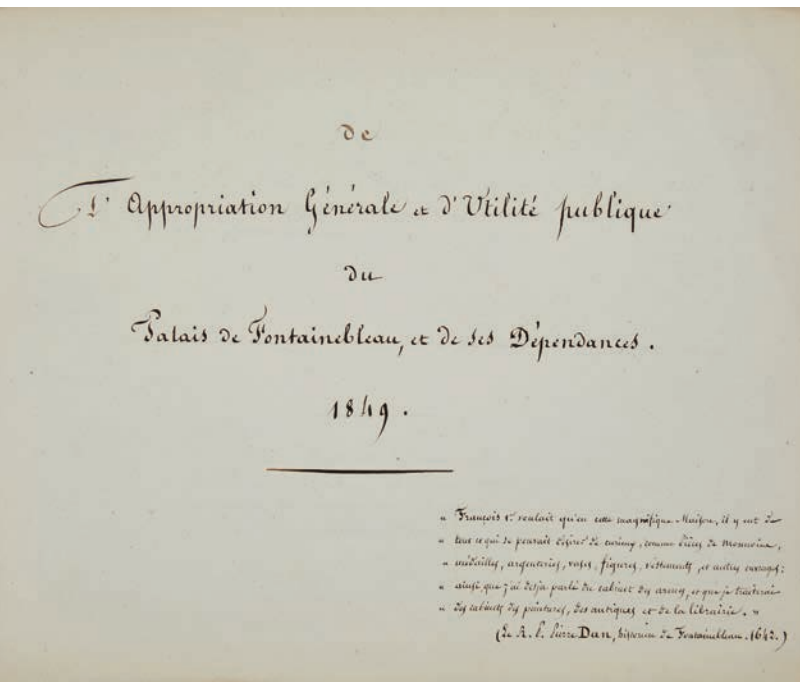 de
L'Appropriation Générale et d'Utilité publique
du
Palais de Fontainebleau, et de ses Dépendances.
1849.
" François 1er voulait qu'en cette magnifique Maison, il y eut de
" tout ce qui se pouvait désirer de curieux, comme pièces de monnoies,
" médailles, argenteries, vases, figures, vêtements, et autres ouvrages:
" ainsi que j'ai desja parlé du cabinet des armes, et que je traiterai
" des cabinets des peintures, des antiques et de la librairie. "
(Le R. P. Pierre Dan, historien de Fontainebleau. 1642.)